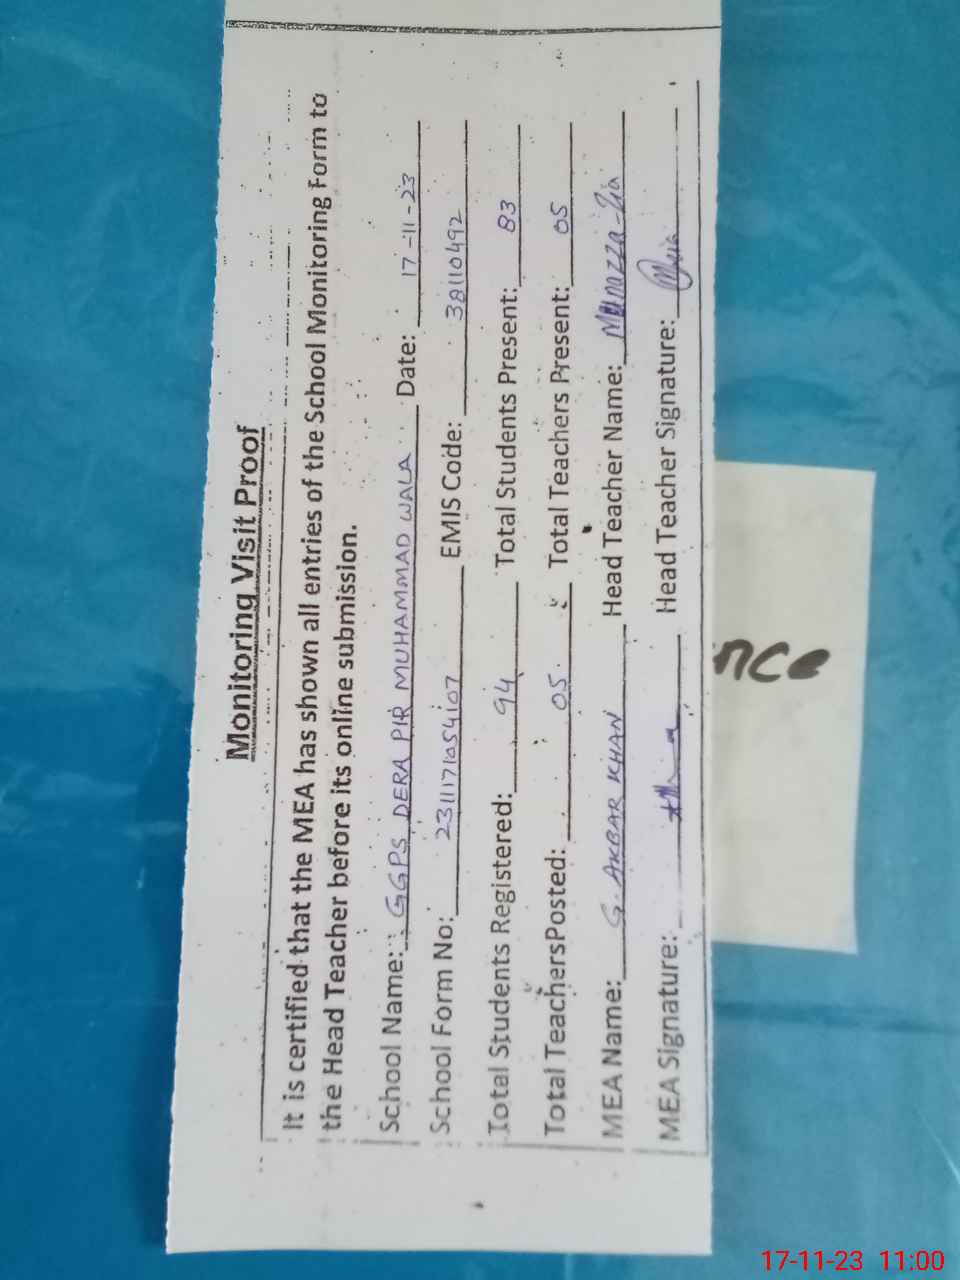 Monitoring Visit Proof
It is certified that the MEA has shown all entries of the School Monitoring Form to
the Head Teacher before its online submission.
School Name: GGPS DERA PIR MUHAMMAD WALA Date: 17-11-23
School Form No: 2311171054107 EMIS Code: 38110492
Total Students Registered: 94 Total Students Present: 83
Total TeachersPosted: 05 Total Teachers Present: 05
MEA Name: G. AKBAR KHAN Head Teacher Name: Munazza Zia
MEA Signature: Head Teacher Signature:
nce
17-11-23 11:00